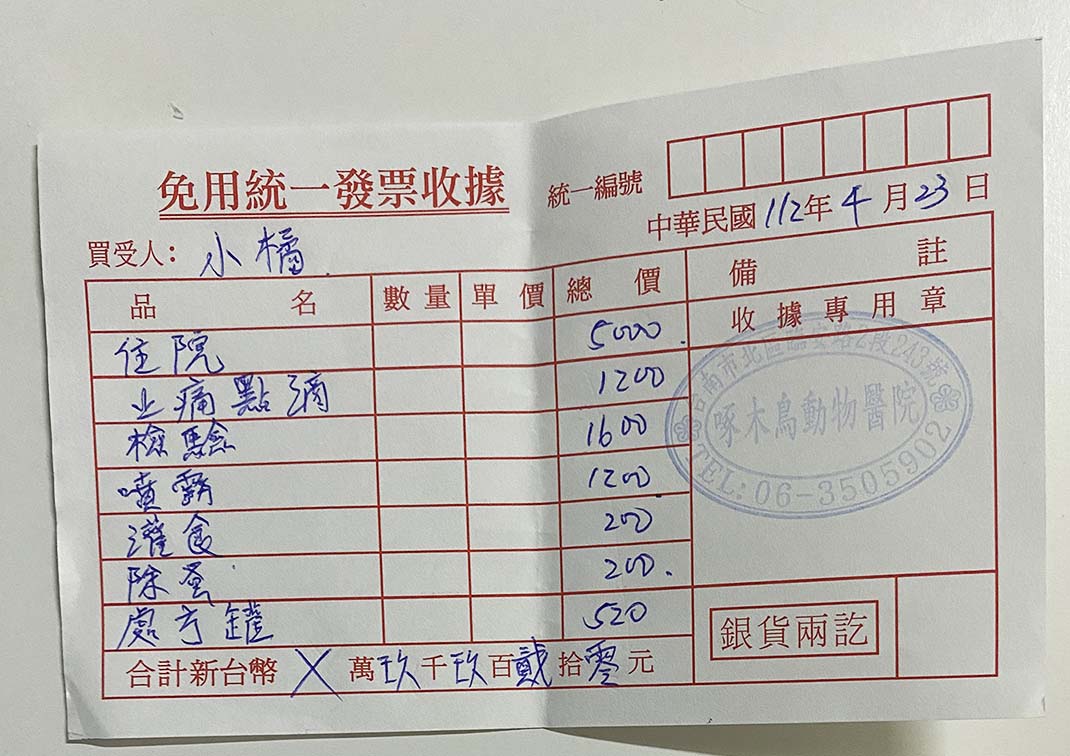 免用統一發票收據
統一編號
中華民國112年4月23日
買受人：小橘
品名 數量 單價 總價 備註
收據專用章
住院 5000
止痛點滴 1200
檢驗 1600
噴霧 1200
灌食 200
除蚤 200
處方罐 520
台南市北區臨安路2段243號
啄木鳥動物醫院
TEL:06-3505902
合計新台幣 X 萬 玖 千 玖 百 貳 拾 零 元
銀貨兩訖